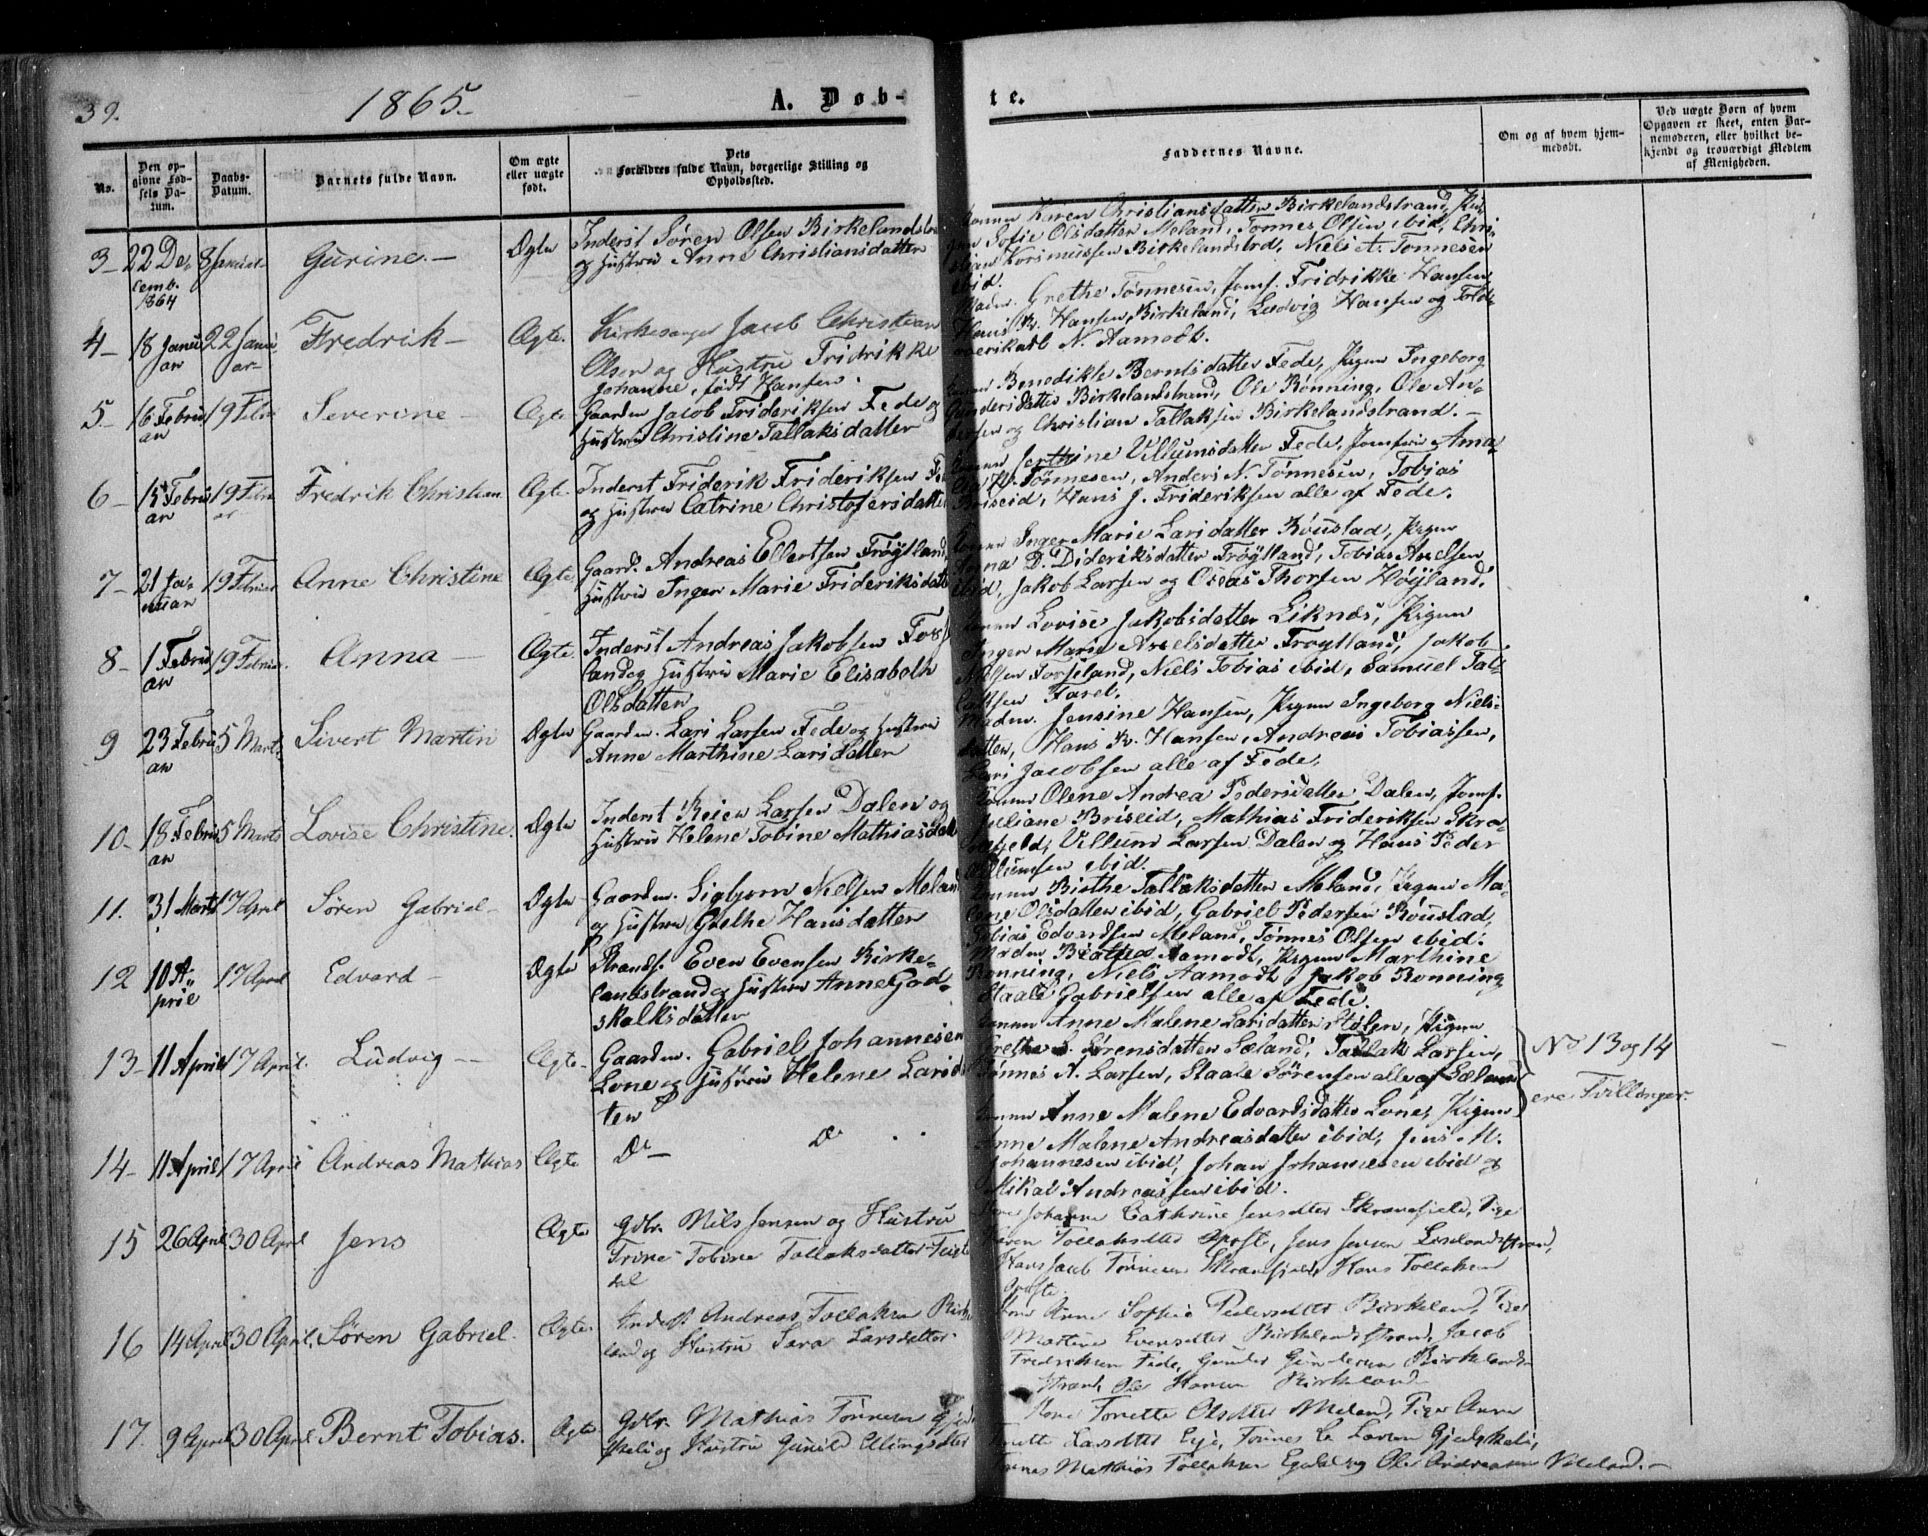 39.
1865.
A. Døb-
te.
No.
Den op-
givne Fød-
sels Da-
tum.
Daabs-
Datum.
Barnets fulde Navn.
Om ægte
eller uægte
født.
Dets
Forældres fulde Navn, borgerlige Stilling og
Opholdssted.
Faddernes Navne.
Om og af hvem hjem-
medøbt.
Ved uægte Børn af hvem
Opgaven er skeet, enten Bar-
nemoderen, eller hvilket be-
kjendt og troværdigt Medlem
af Menigheden.
3- 22 De- 8 Januar Gurine.- Ægte Inderst Søren Olsen Birkelandstr
cemb. og Hustru Anne Christiansdatter
1864
Karen Christiansdatter Birkelandstrand, Pi
Sofie Olsdatter Meland, Tønnes Olsen ibid, Chri-
Birkelandstrd, Niels A. Tønnesen
ibid.
4- 18 Janu 22 Janu Fredrik- Ægte. Kirkesanger Jacob Christian
ar ar- Olsen og Hustru Fridrikke
Johanne, født Hansen.
Madm. Grethe Tønnesen, Jomf. Fridrikke Hansen,
Hans R. Hansen, Birkeland, Ludvig Hansen og
N. Aamodt.
5- 16 Febru 19 Febr Severine- Ægte Gaardm Jacob Frideriksen Fede og
ar Hustru Christine Tallaksdatter
Benedikte Berntsdatter Fede, Pigen Ingeborg
Gundersdatter Birkelandstrand, Ole Rønning, Ole An-
dersen og Christian Tallaksen Birkelandstrand.-
6- 15 Febru 19 Febr Fredrik Christian Ægte. Inderst Friderik Frideriksen
ar og Hustru Catrine Christofersdatter
Villumsdatter Fede, Jomfru Ama-
Tønnesen, Anders N. Tønnesen, Tobias
Briseid, Hans J. Frideriksen alle af Fede.
7- 21 Ja- 19 Febr Anne Christine Ægte Gaard. Andreas Ellertsen Frøytland
nuar Hustru Inger Marie Frideriksdatt
Inger Marie Larsdatter Røustad, Pigen
Anna D. Dideriksdatter Frøytland, Tobias Axelsen
ibid, Jakob Larsen og Oseas Thorsen Høyland.
8- 1 Febru 19 Febru. Anna- Ægte. Inderst Andreas Jakobsen Fos
ar land og Hustru Marie Elisabeth
Olsdatter
Lovise Jakobsdatter Liknes, Pigen
Inger Marie Axelsdatter Frøytland, Jakob
Nilsen Forseland, Niels Tobias ibid, Samuel Tal-
Farel.
9 23 Febru 5 Marts Sivert Martin Ægte Gaardm. Lars Larsen Fede og Hustru
ar Anne Marthine Larsdatter
Madm. Jensine Hansen, Pigen Ingeborg Niels-
datter, Hans R. Hansen, Andreas Tobiassen,
Lars Jacobsen alle af Fede.
10- 18 Febru 5 Marts Lovise Christine. Ægte Inderst Reier Larsen Dalen og
ar Hustru Helene Tobine Mathiasdatt
Olene Andrea Pedersdatter Dalen, Jomf.
Juliane Briseid, Mathias Frideriksen Skra-
Villum Larsen Dalen og Hans Peder
Villumsen ibid.
11. 31 Marts 17 April Søren Gabriel- Ægte Gaardm. Sigbjørn Nielsen Meland
og Hustru Grethe Hansdatter
Birthe Tallaksdatter Meland, Pigen Ma-
Olsdatter ibid, Gabriel Pedersen Røustad,
Tobias Edvardsen Meland, Tønnes Olsen ibid.
12 10 A- 17 April Edvard- Ægte Strands. Even Evensen Birke-
pril landstrand og Hustru Anne God-
skalksdatter
Madm Aamodt, Pigen Marthine
Rønning, Niels Aamodt, Jakob Rønning
Staale Gabrielsen alle af Fede.
13- 11 April 17 April. Ludvig- Ægte- Gaardm. Gabriel Johannesen
Lone og Hustru Helene Larsdat
ter
Anne Malene Larsdatter Stølen, Pigen
Sørensdatter Sæland, Tallak Larsen,
Tønnes A. Larsen, Staale Sørensen alle af Sæland
No 13 og 14
ere Tvillinger.
14- 11 April 17 April Andreas Mathias Ægte Do- Do
Anne Malene Edvardsdatter Lone, Pigen
Anne Malene Andreasdatter ibid, Jens M.
Johannesen ibid, Johan Johannesen ibid og
Mikal Andreassen ibid.
15 26 April 30 April Jens Ægte Gdbr. Nils Jensen og Hustru
Trine Tobine Tollaksdatter
dal
Johanne Cathrine Jensdtter Skranefjeld, Pige
Karen Tollaksdtter Øpsft, Jens Jensen
Hans Jacob Tønnesen Skranefjeld, Hans Tollaksen
16 14 April 30 April. Søren Gabriel. Ægte. Inderst Andreas Tollaksen Birke
land og Hustru Sara Larsdatter.
Anne Sophie Pedersdtter Birkeland, Pige
Martine Evensdtter Birkelandsstrand, Jacob
Fredriksen Fede, Gunder Gundersen Birkelands-
strand, Ole Hansen Birkeland
17. 9 April 30 April Bernt Tobias. Ægte Gdbr. Mathias Tønnesen
og Hustru Gunild Ellingsdtter
Kone Tonette Olsdtter Meland, Pige Anne
Larsdtter Eye, Tønnes L. Larsen
Mathias Tollaksen og Ole Andreasen